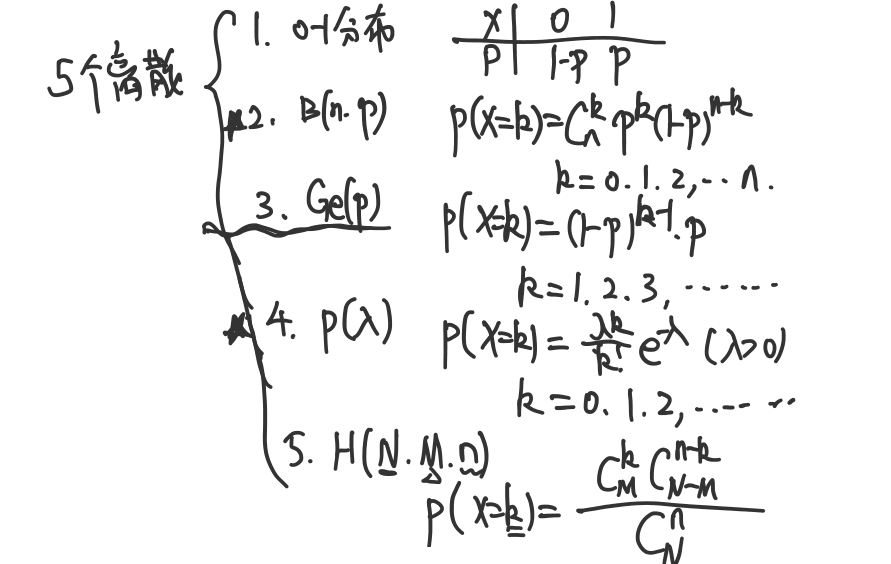 5个离散
1. 0-1分布
X 0 1
P 1-p p
2. B(n.p) P(X=k)=C_n^k p^k(1-p)^{n-k}
k=0.1.2,...n.
3. Ge(p) P(X=k)=(1-p)^{k-1}.p
k=1.2.3,......
4. P(λ) P(X=k)=\frac{λ^k}{k!}e^{-λ} (λ>0)
k=0.1.2,......
5. H(N.M.n)
P(X=k)=\frac{C_M^k C_{N-M}^{n-k}}{C_N^n}